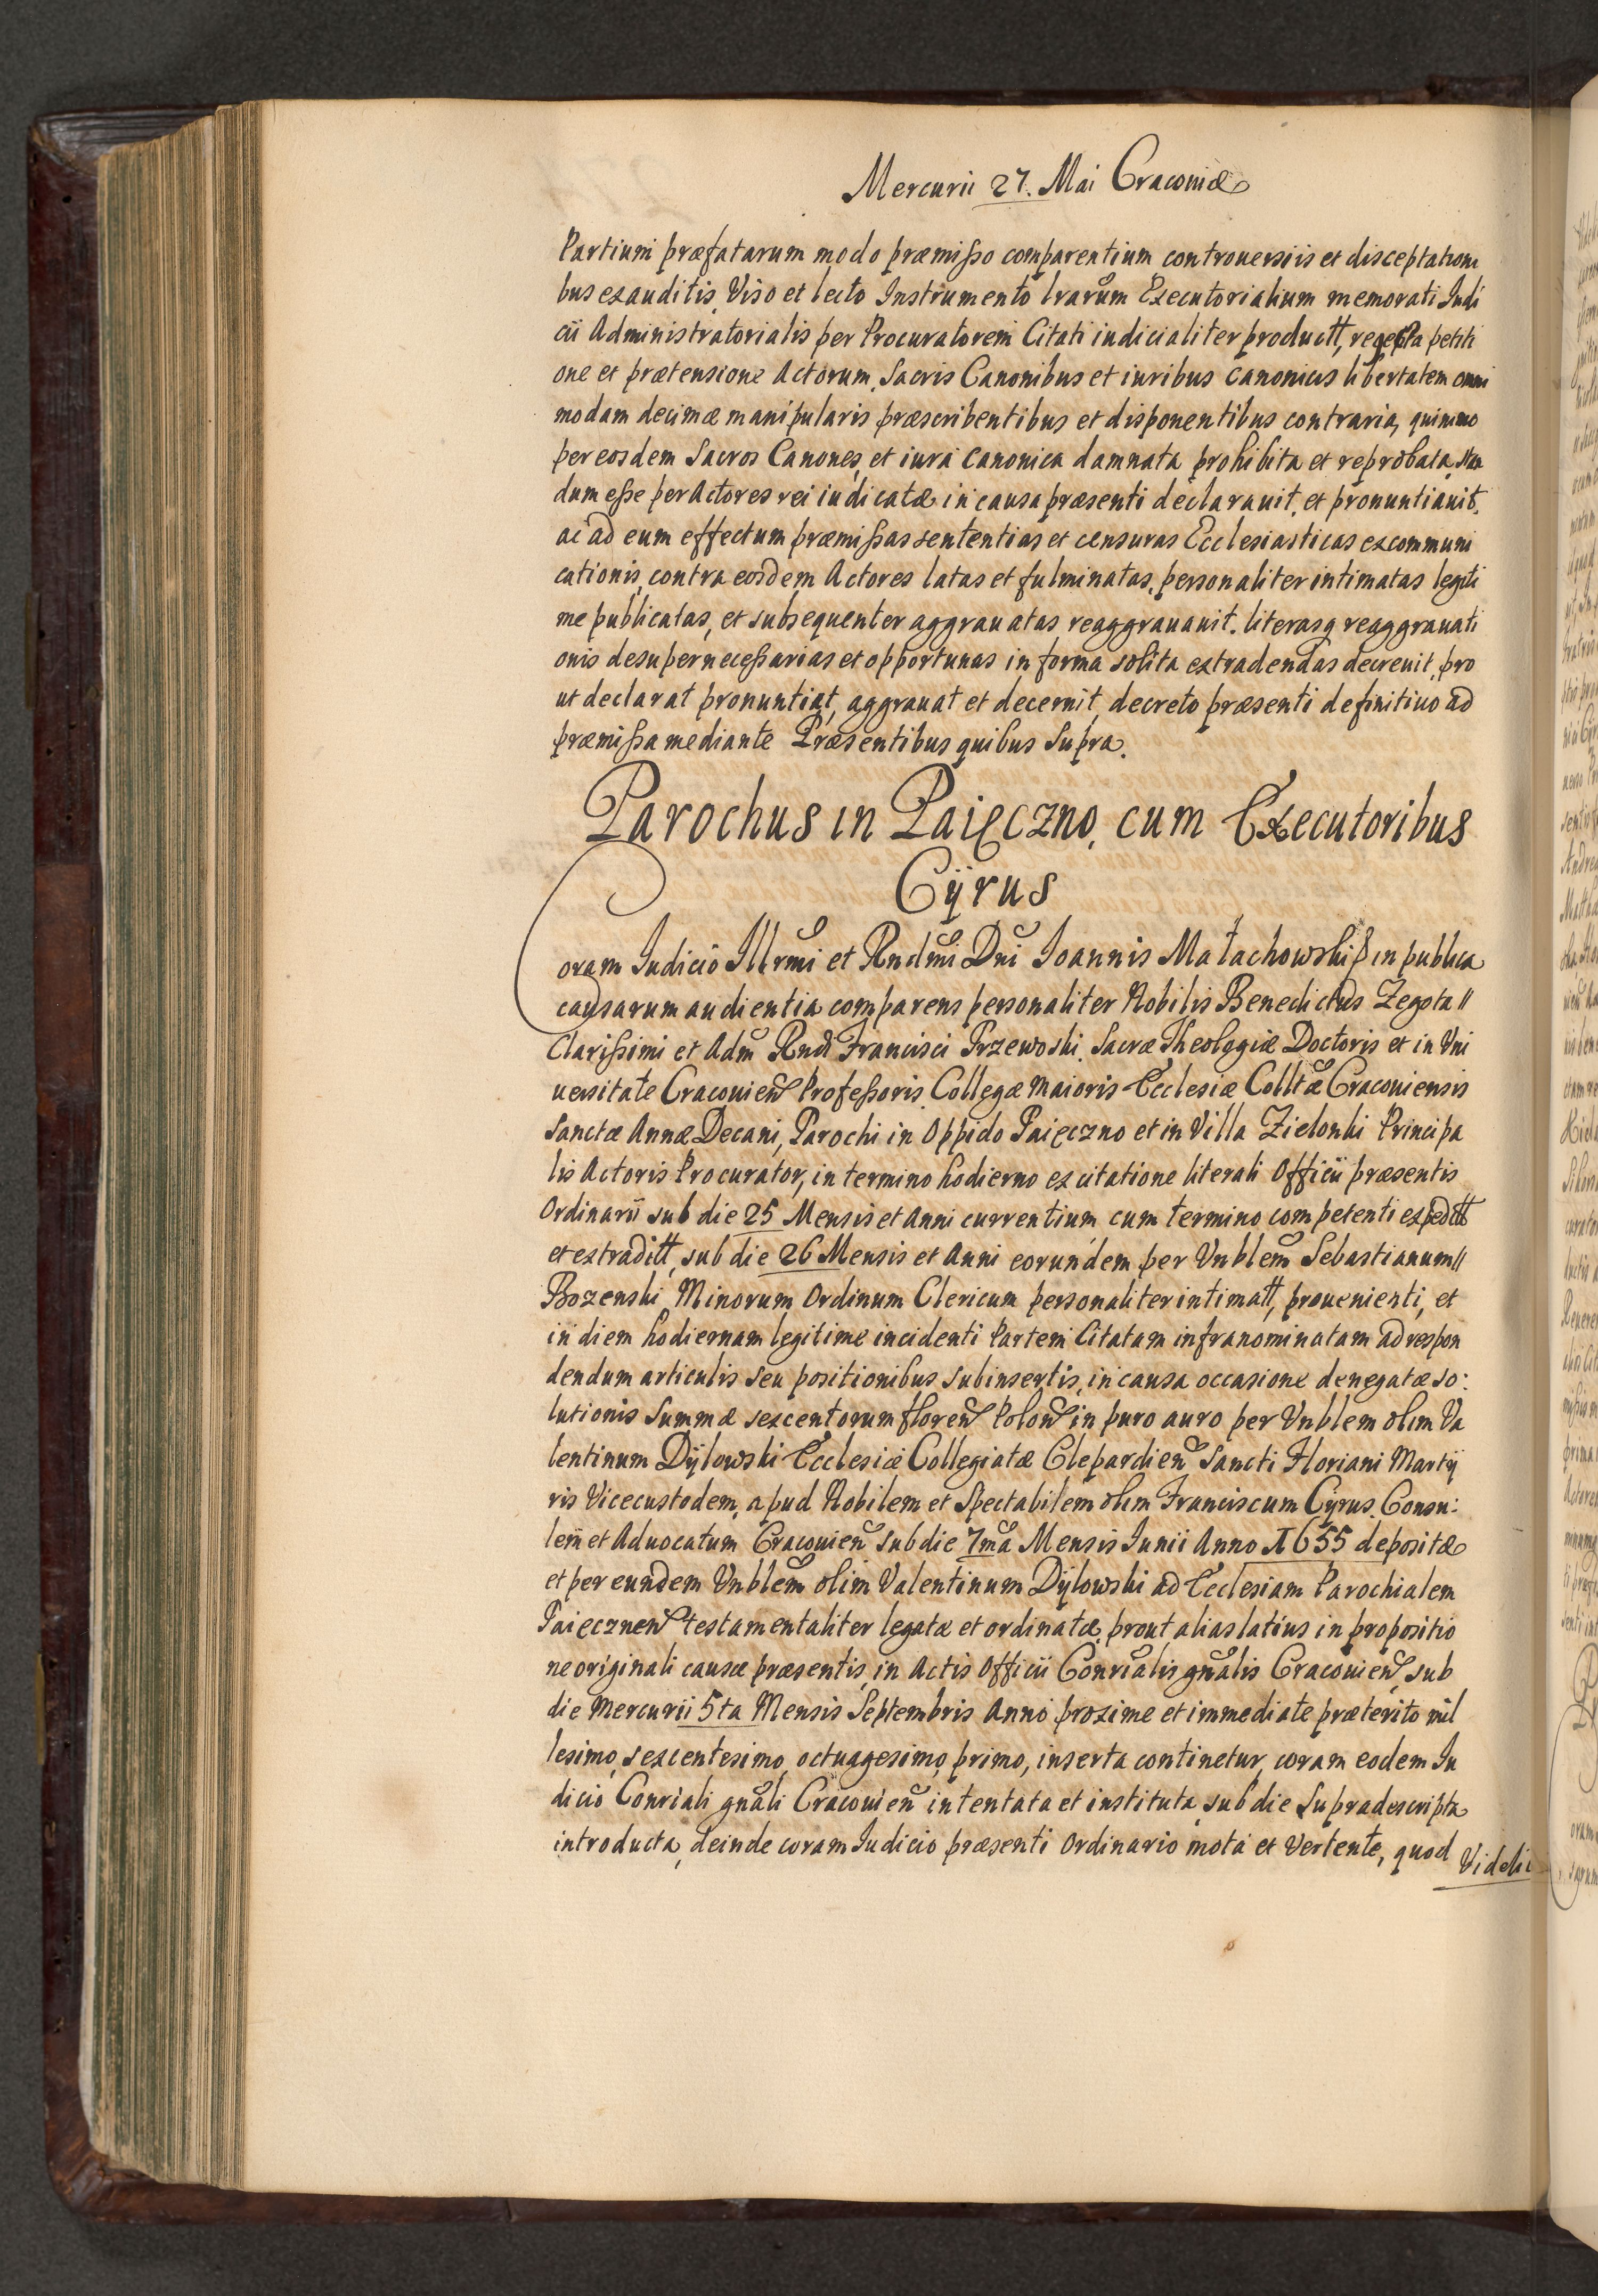 Mercurii 27. Mai Cracoviæ
Partium præfatarum modo præmisso comparentium controuersiis et disceptationi
bus exauditis, Viso et lecto Instrumento lrarum Executorialium memorati Iudi
cii Administratorialis per Procuratorem Citati iudicialiter productt, rejecta petiti
one et prætensione Actorum, Sacris Canonibus et iuribus canonicis libertatem omni
modam decimæ manipularis præscribentibus et disponentibus contraria, quinimo
per eosdem Sacros Canones, et iura canonica damnata prohibita et reprobata, stan
dum esse per Actores rei iudicatæ in causa præsenti declarauit, et pronuntiauit,
ac ad eum effectum præmissas sententias et censuras Ecclesiasticas excommuni
cationis, contra eosdem Actores latas et fulminatas, personaliter intimatas legiti
me publicatas, et subsequenter aggrauatas reaggrauauit. literasq reaggrauati
onis desuper necessarias et opportunas in forma solita extradendas decreuit, pro
ut declarat pronuntiat, aggrauat et decernit, decreto præsenti definitiuo ad
præmissa mediante Præsentibus quibus Supra.
Parochus in Paięczno, cum Executoribus
Cÿrus
Coram Iudicio Illrmi et Rndmi Dni Ioannis Małachowski in publica
causarum audientia comparens personaliter Nobilis Benedictus Zegota //
Clarissimi et Adm Rndi Francisci Przewoski, Sacræ Theologiæ Doctoris et in Vni
uersitate Cracouien Professoris Collegæ Maioris Ecclesiæ Colltæ Cracouiensis
Sanctæ Annæ Decani, Parochi in Oppido Paięczno et in Villa Zielonki Principa
lis Actoris Procurator, in termino hodierno ex citatione literali Officii præsentis
Ordinarii sub die 25 Mensis et Anni currentium cum termino competenti expeditt
et extraditt, sub die 26 Mensis et Anni eorundem per Vnblem Sebastianum //
Bozenski Minorum Ordinum Clericum personaliter intimatt, prouenienti, et
in diem hodiernam legitime incidenti Partem Citatam infranominatam ad respon
dendum articulis seu positionibus subinsertis, in causa occasione denegatæ so:
lutionis Summæ sexcentorum floren Polon in puro auro per Vnblem olim Va
lentinum Dÿlowski Ecclesiæ Collegiatæ Clepardien Sancti Floriani Martÿ
ris Vicecustodem, apud Nobilem et Spectabilem olim Franciscum Cyrus Consu:
lem et Aduocatum Cracouien sub die 7ma Mensis Iunii Anno 1655 depositæ
et per eundem Vnblem olim Valentinum Dÿlowski ad Ecclesiam Parochialem
Paięcznen testamentaliter legatæ et ordinatæ, prout alias latius in propositio
ne originali causæ præsentis, in Actis Officii Conrialis gnalis Cracouien, sub
die Mercurii 5ta Mensis Septembris Anno proxime et immediate præterito mil
lesimo, sexcentesimo, octuagesimo, primo, inserta continetur, coram eodem Iu
dicio Conriali gnali Cracouien intentata et instituta, sub die Supradescripta
introducta, deinde coram Iudicio præsenti Ordinario mota et Vertente, quod
Videlic